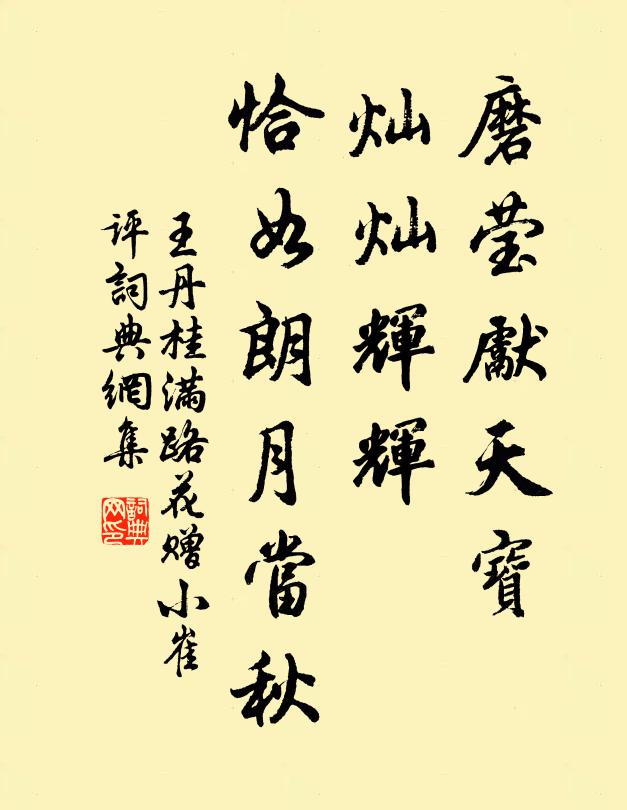 磨莹獻天寶
灿灿輝輝
恰如朗月當秋
王丹桂满路花赠小崔
评詞典網集
詞典网印